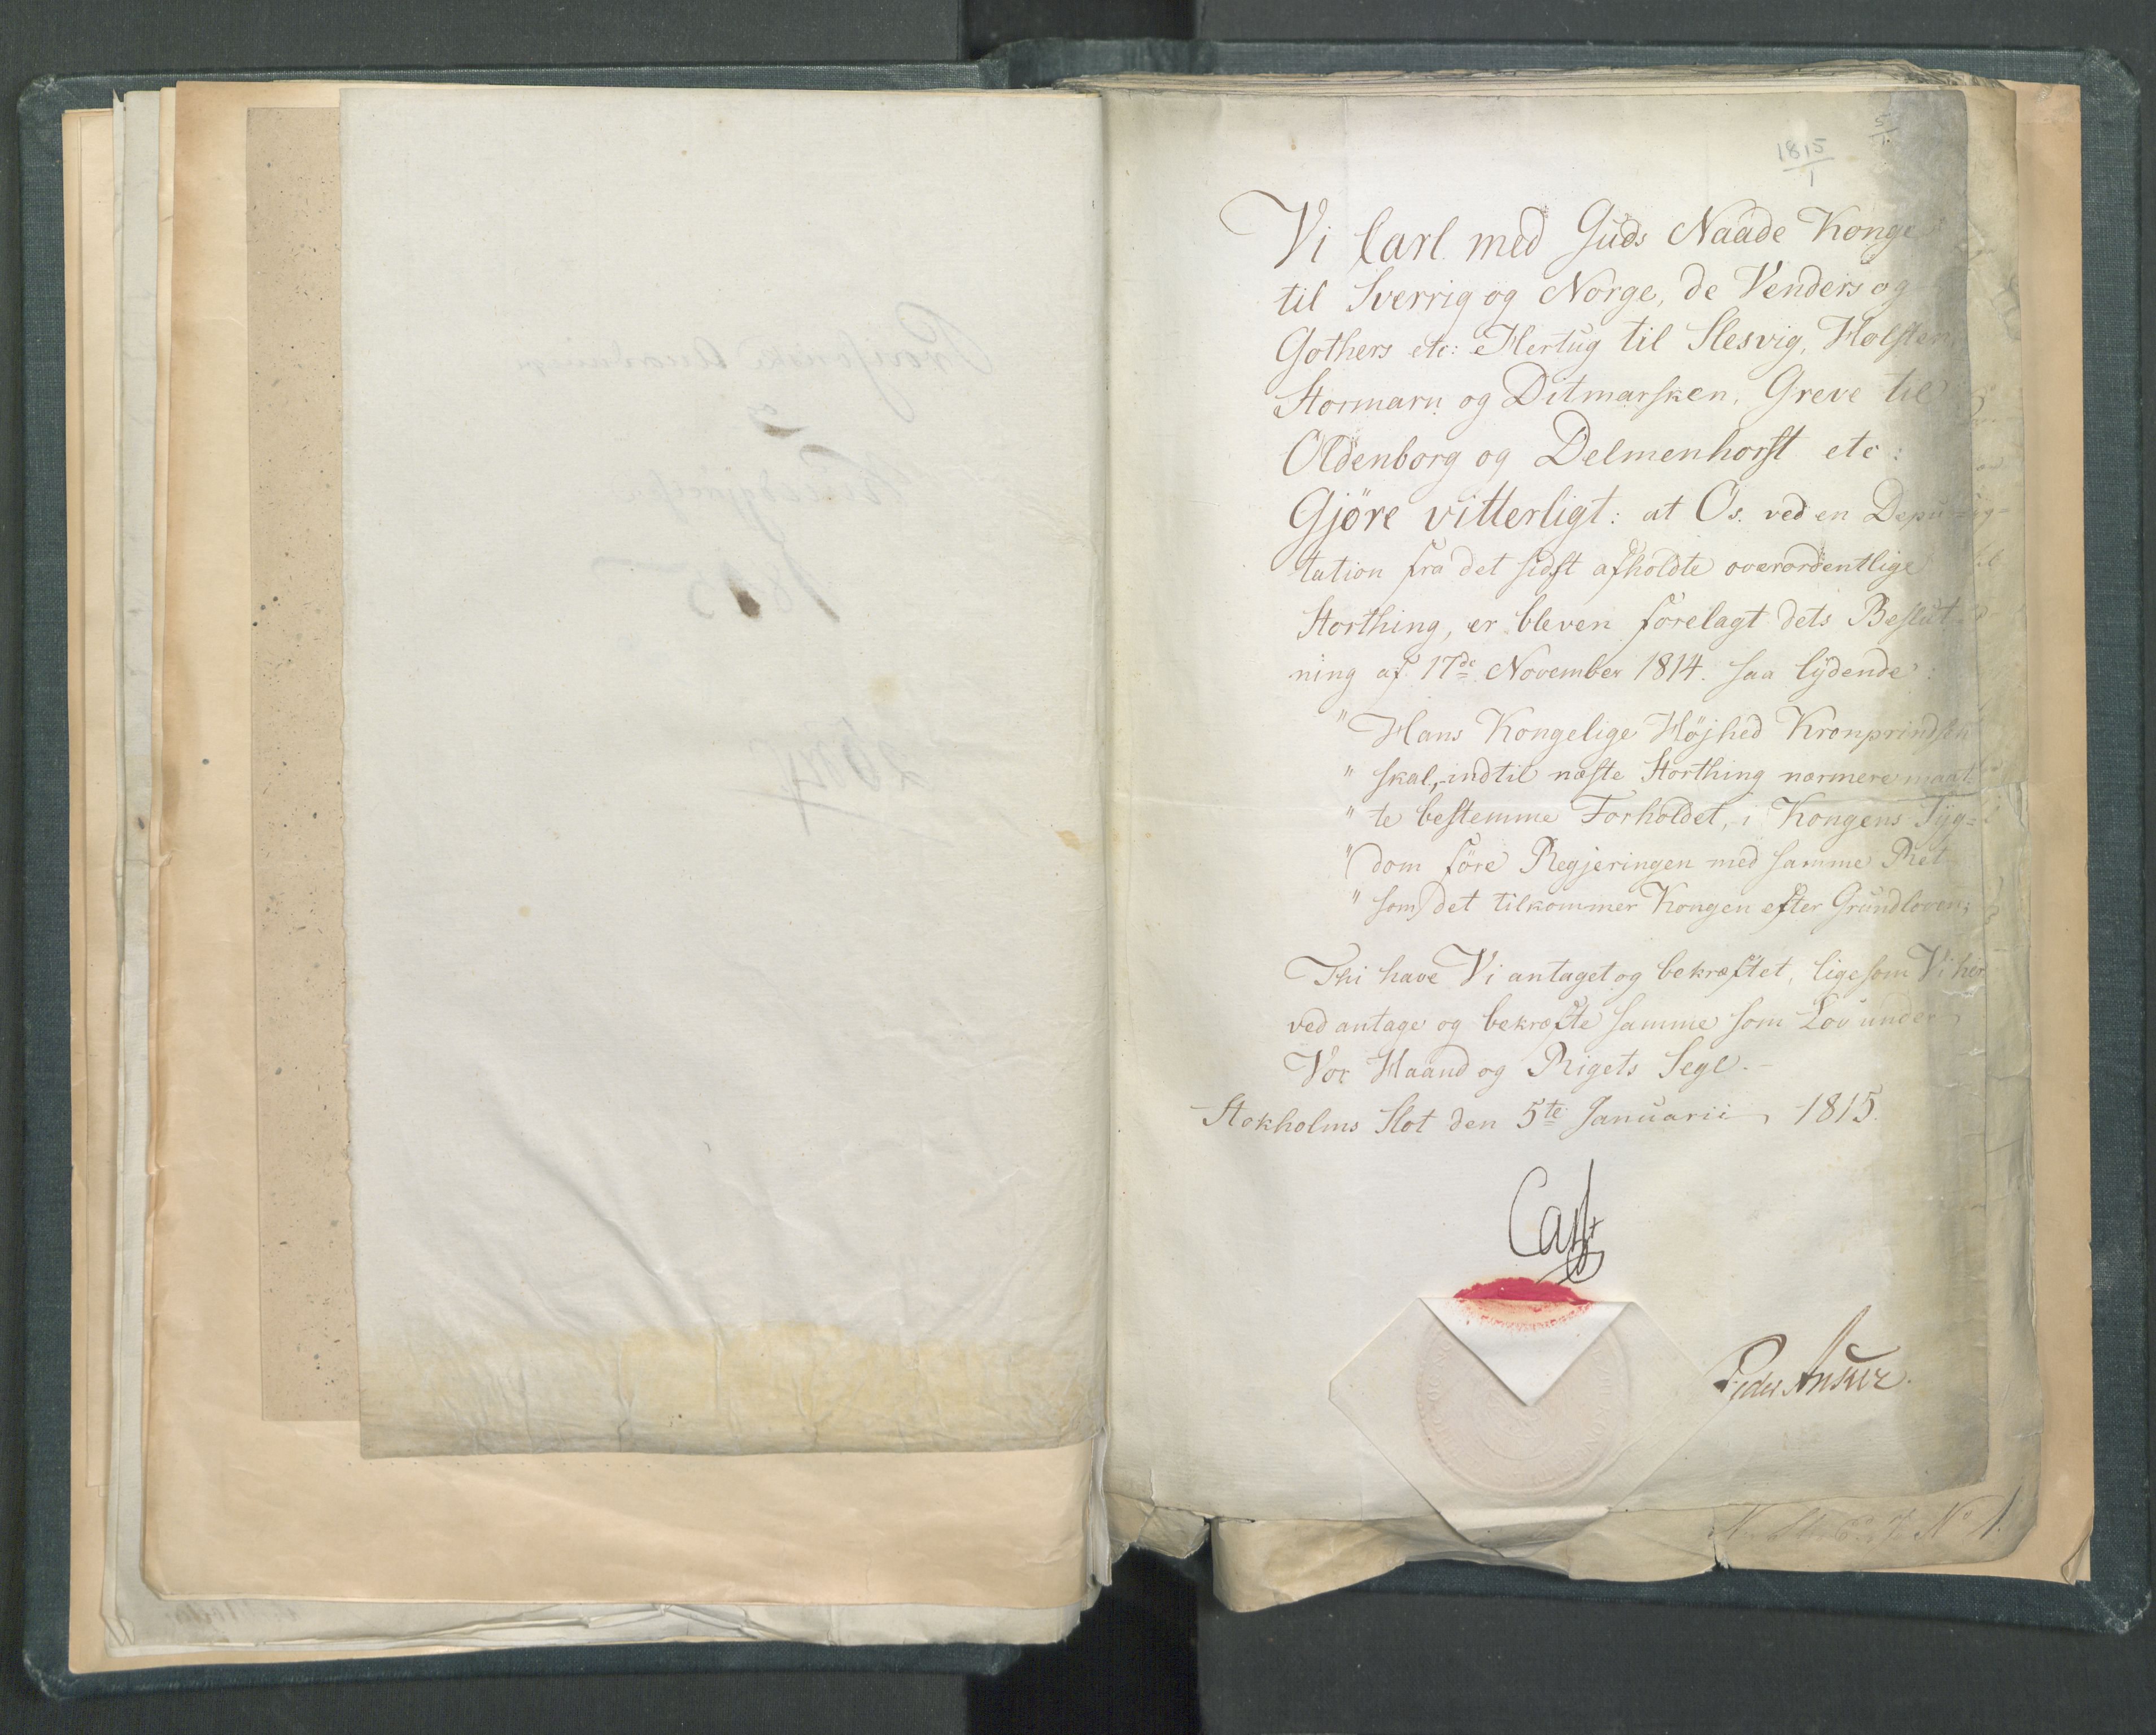 1815
1
5/1
Vi Carl med Guds Naade Konge
til Sverrig og Norge, de Venders og
Gothers etc: Hertug til Slesvig, Holsten,
Stormarn og Ditmarsken, Greve til
Oldenborg og Delmenhorst etc:
Gjöre vitterligt: at Os ved en Depu-
tation fra det sidst afholdte overordentlige
Storthing, er bleven forelagt dets Beslut-
ning af 17de November 1814. saa lydende:
"Hans Kongelige Höjhed Kronprindsen
" skal, indtil næste Storthing nærmere maat-
" te bestemme Forholdet, i Kongens Syg=
" dom före Regjeringen med samme Ret
" som det tilkommer Kongen efter Grundloven;
Thi have Vi antaget og bekræftet, ligesom Vi her-
ved antage og bekræfte samme som Lov under
Vor Haand og Rigets Segl.-
Stokholms Slot den 5te Januarii 1815.
Carl
Peder Anker.